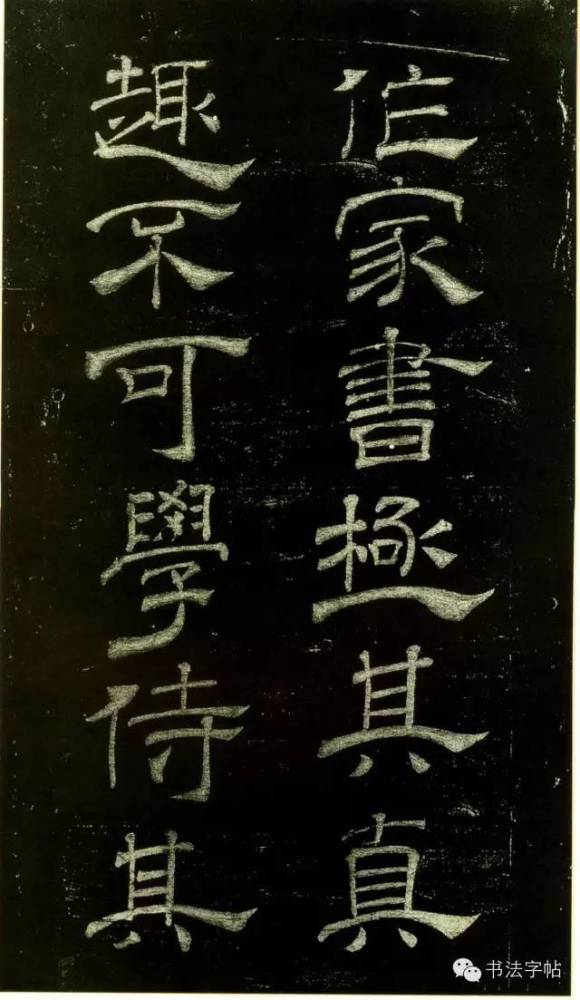 作家書極其真
趣不可學侍其
书法字帖